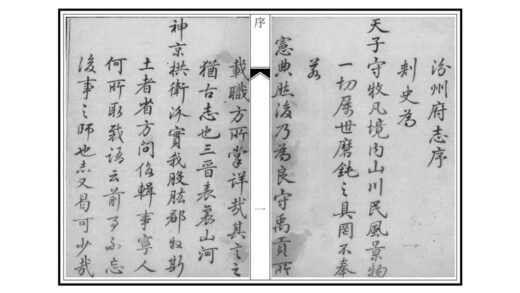 汾州府志序
刺史為
天子守牧凡境內山川民風景物
一切厲世磨鈍之具罔不奉
若
憲典然後乃為良守禹貢所
序
一
載職方所掌詳哉其言之
猶古志也三晉表裏山河
神京拱衛沭實我股肱郡牧斯
土者省方問俗輯事寧人
何所取裁語云前事不忘
後事之師也志又曷可少哉